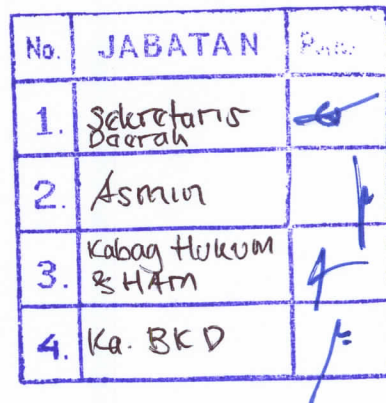 No. JABATAN
1. Sekretaris
Daerah
2. Asmin
3. Kabag Hukum
& HAM
4. Ka. BKD